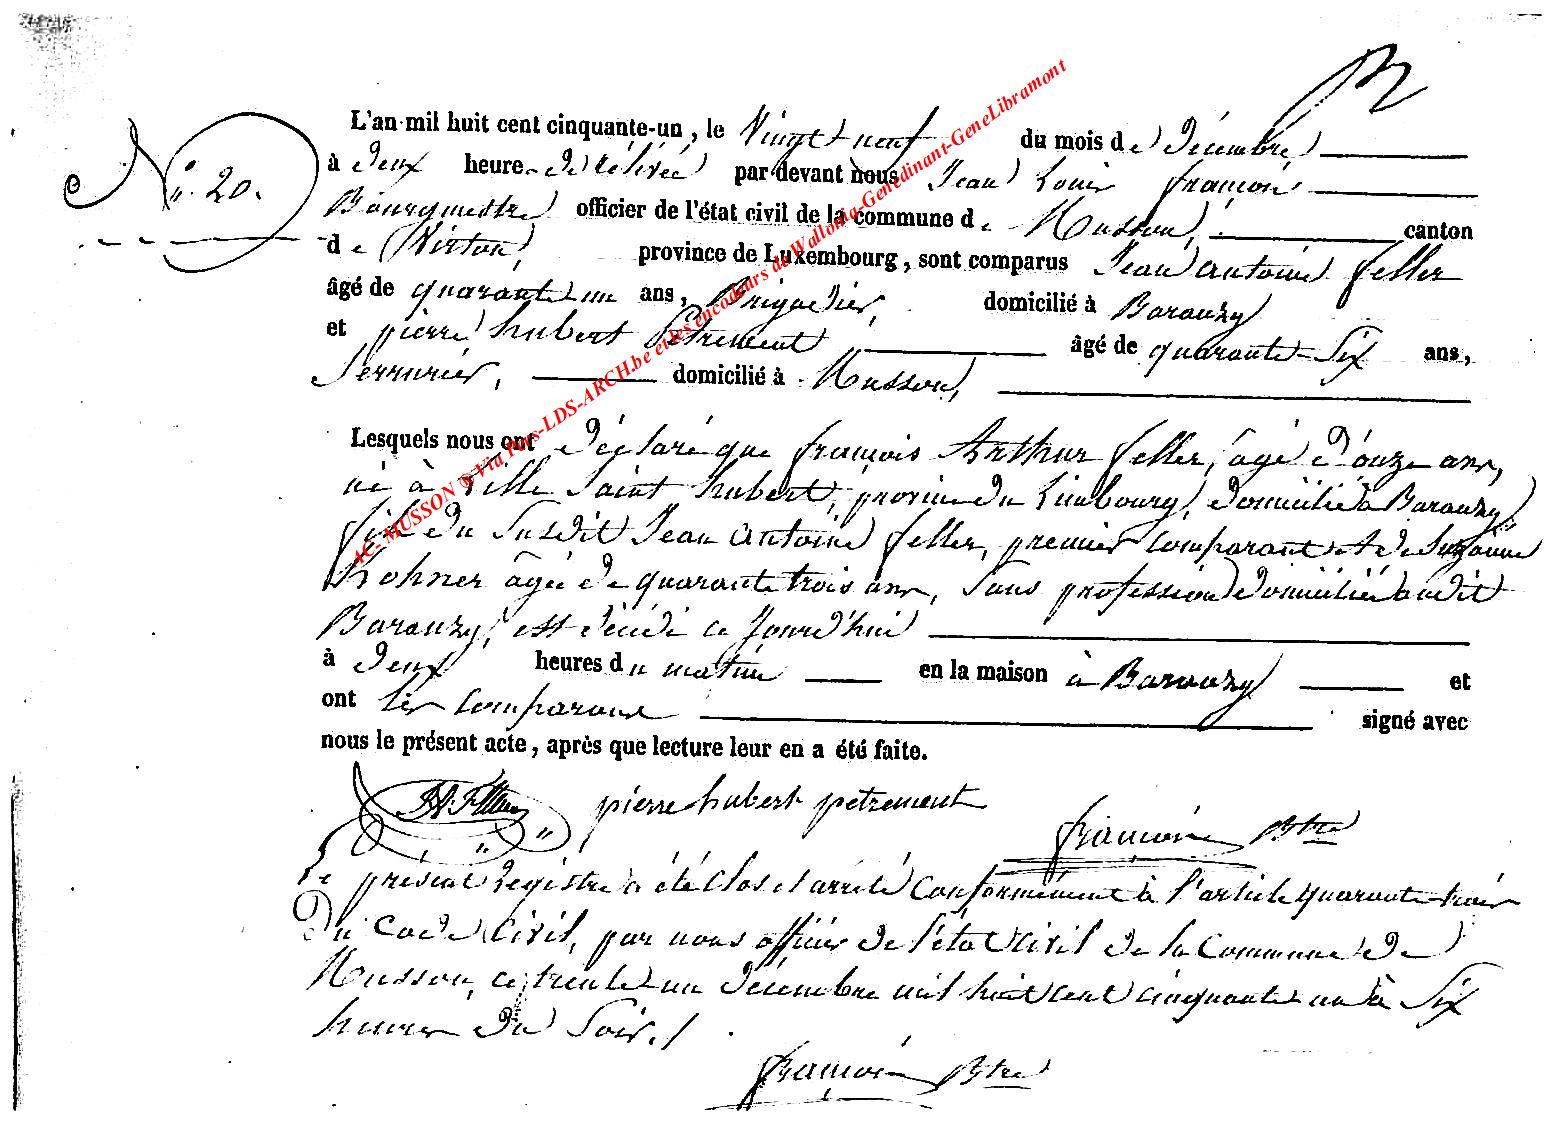 N° 20.
L'an mil huit cent cinquante-un, le Vingt-neuf du mois de Décembre,
à deux heure de rélévée par devant nous Jean Louis françois
Bourgmestre officier de l'état civil de la commune de Musson, canton
de Virton, province de Luxembourg, sont comparus Jean Antoine feller
âgé de quarante un ans, Brigadier, domicilié à Baranzy
et pierre hubert Petrement âgé de quarante-Six ans,
Serrurier, domicilié à Musson,
Lesquels nous ont déclaré que françois Arthur feller, âgé d'onze ans,
né à Ville Saint hubert, province du Limbourg, domicilié à Baranzy,
fils du Susdit Jean Antoine feller, premier comparant et de Suzanne
Kohner âgée de quarante trois ans, Sans profession domiciliée audit
Baranzy, est décédé ce Jourd'hui
à deux heures du matin en la maison à Baranzy et
ont les comparans signé avec
nous le présent acte, après que lecture leur en a été faite.
pierre hubert petrement
françois Btre
Le présent registre a été clos et arrêté conformément à l'article quarante-trois
du Code Civil, par nous officier de l'état Civil de la Commune de
Musson, ce trente un décembre mil huit cent cinquante un à Six
heures du Soir./
françois Btre
AC-MUSSON @ Via Pars-LDS-ARCH.be et les encodeurs de Wallonia-Genedinant-GeneLibramont